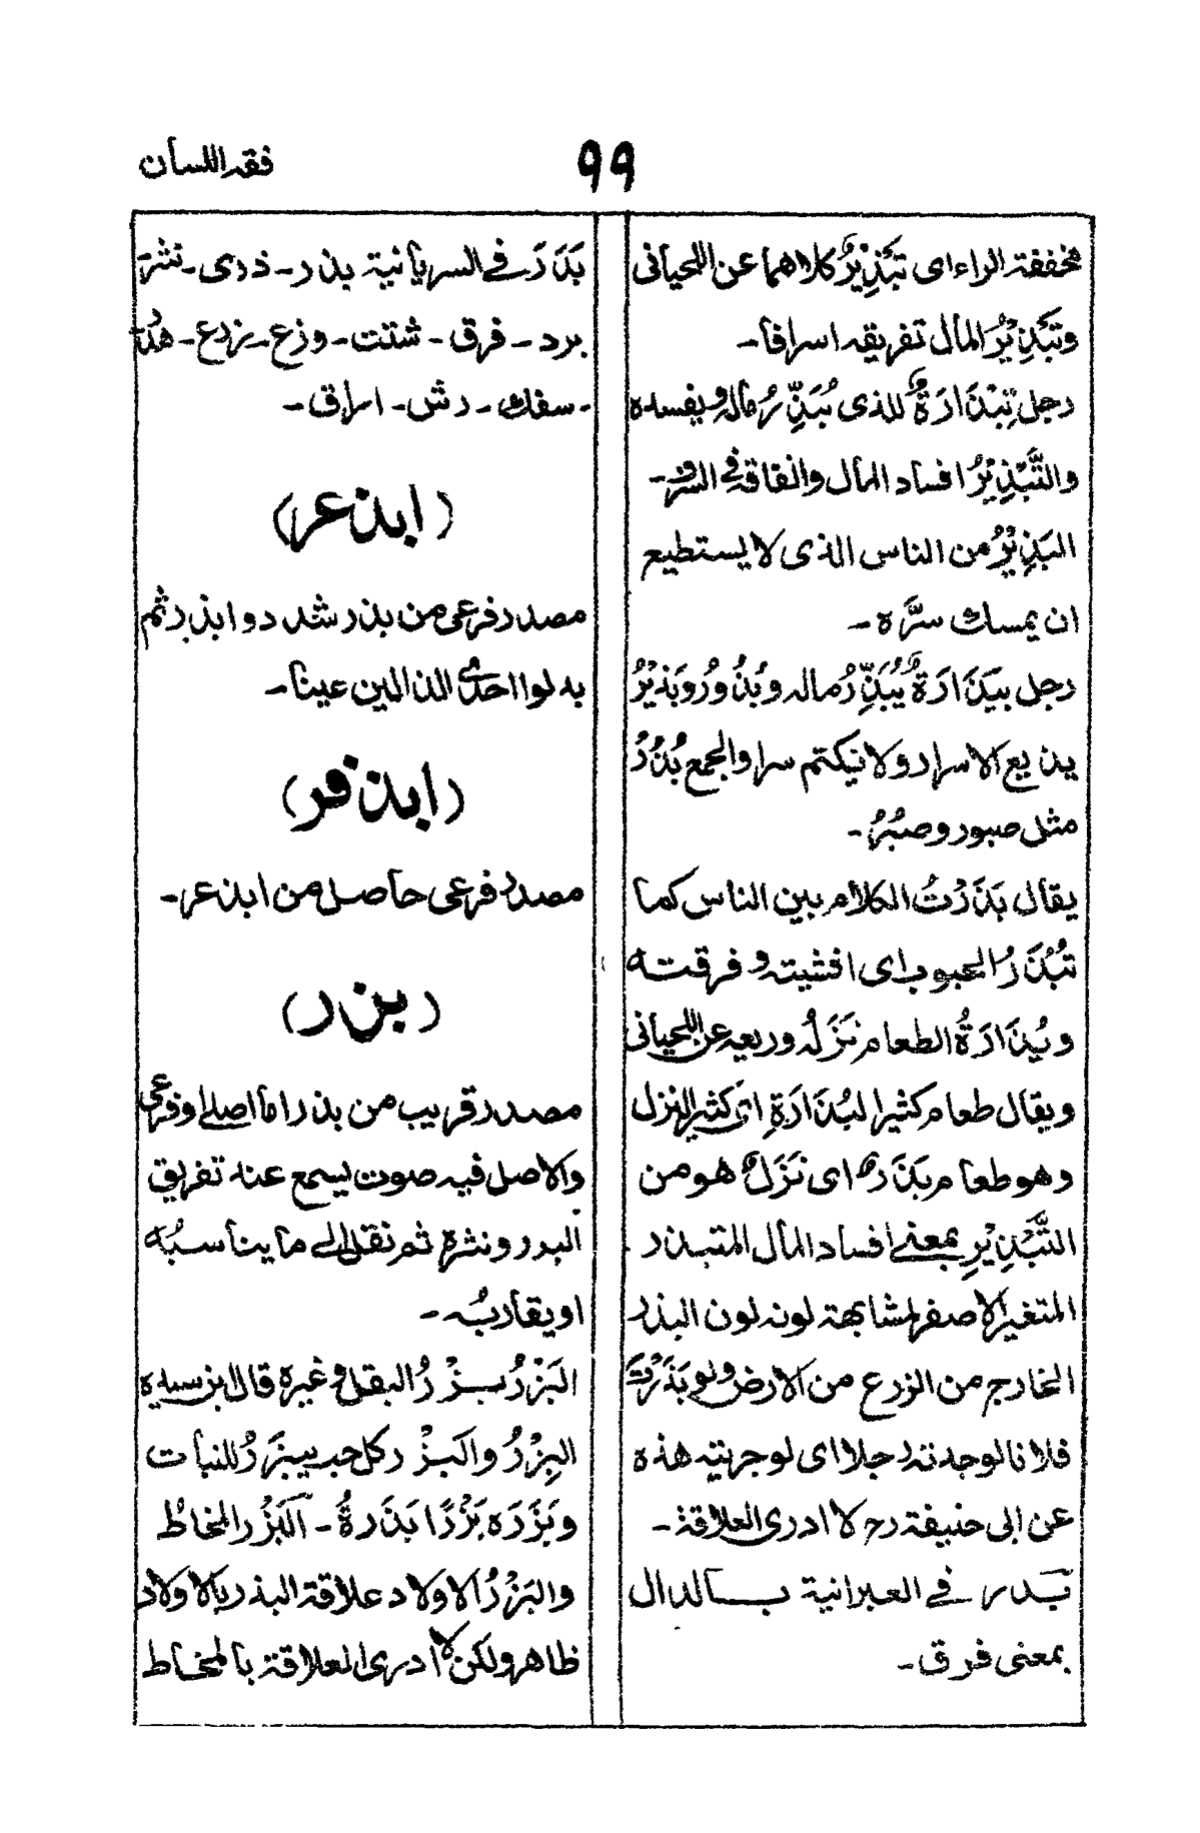 فقه اللسان
٩٩
مخففة الراء اى تَبْذِيْرٌ كلاهما عن اللحيانى
وتَبْذِيْرُ المال تفريقه اسرافا۔
رجل تِبْذَارَةٌ للذى يُبَذِّرُ ماله ويفسده
والتَّبْذِيْرُ افساد المال وانفاقه فى السرف۔
البَذِيْرُ من الناس الذى لا يستطيع
ان يمسك سرَّه۔
رجل بيذَارَةٌ يُبَذِّرُ ماله وبُذُورُ وبَذِيْرُ
يذيع الاسرار ولا يكتم سرا والجمع بُذُرُ
مثل صبور وصُبُرُ۔
يقال بَذَرْتُ الكلام بين الناس كما
تُبْذَرُ الحبوب اى افشيته و فرقته
وبُذَارَةُ الطعام نَزَلُه وريعه عن اللحيانى
ويقال طعام كثير البُذَارَةِ اى كثير النزل
وهو طعام بَذَرٌ اى نَزَلٌ هو من
التَّبْذِيْرِ بمعنى افساد المال المتبذر
المتغير الاصفر لمشابهة لونه لون البذر
الخارج من الزرع من الارض ولو بَذَرْتَ
فلانا لوجدته رجلا اى لو جربته هذه
عن ابى حنيفة رح لا ادرى العلاقة۔
بَدر فى العبرانية بالدال
بمعنى فرق۔
بَدَرَ فى السريانية بذر۔ ذرى۔ نثر
برد۔ فرق۔ شتت۔ وزع۔ زرع۔
۔ سفك۔ رش۔ اراق۔
(ابذعر)
مصدر فرعى من بذر شددوا ابذر ثم
بدلوا احدى الذالين عينا۔
(ابذقر)
مصدر فرعى حاصل من ابذعر۔
(بزر)
مصدر قريب من بذر اما اصلى او فرعى
والاصل فيه صوت يسمع عنه تفريق
البدر ونثره ثم نقل الى ما يناسبُه
او يقاربُه۔
البَزْرُ بزْرُ البقل وغيره قال ابن سيده
البِزْرُ والبَزْر كل حب يبزَرُ للنبات
وبَزَرَه بَزْرًا بَذَرهُ۔ اَلبَزْرُ المخاطُ
والبَزْرُ الاولاد علاقة البذر بالاولاد
ظاهر ولكن لا ادرى العلاقة بالمخاط